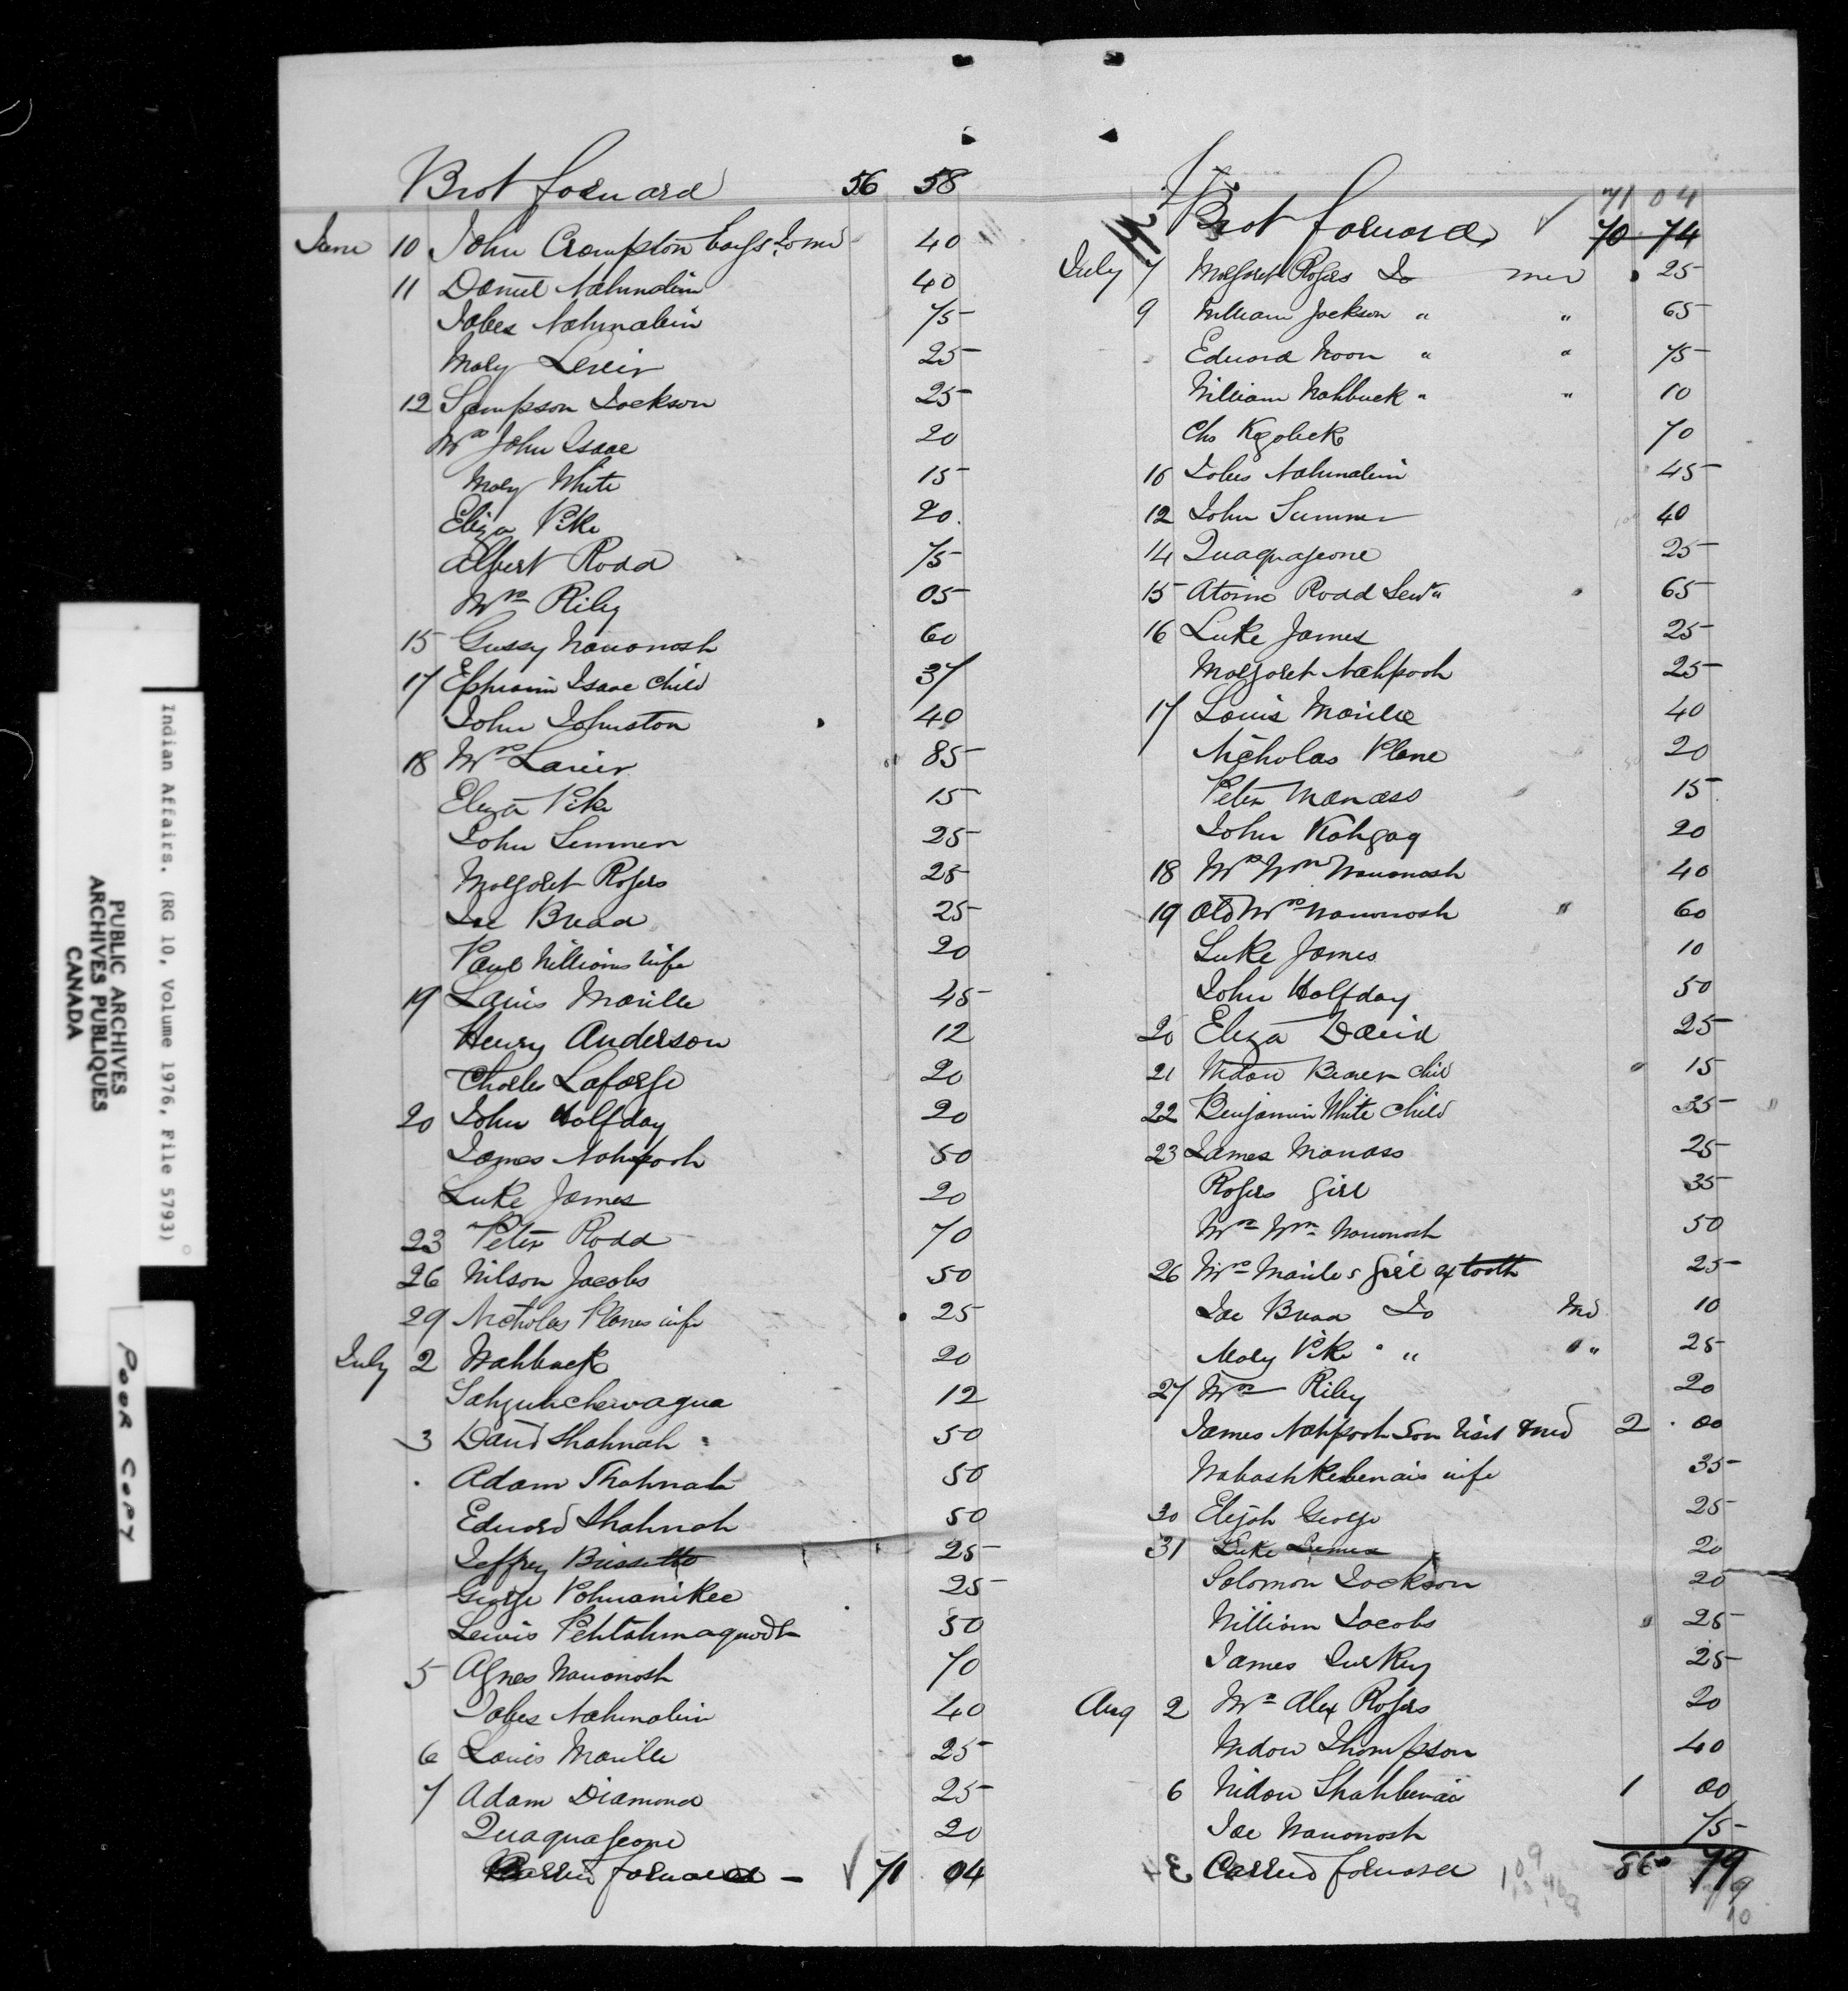 Brot forward 56 58
June 10 John Crompton boys Do med 40
11 Daniel Nahmabin 40
Jabez Nahmabin 75
Mary Levir 25
12 Sampson Jackson 25
Mrs John Isaac 20
Mary White 15
Eliza Pike 20
Albert Rodd 75
Mrs Riley 05
15 Gussy Wawanosh 60
17 Ephraim Isaac Child 37
John Johnston 40
18 Mrs Larier 85
Eliza Pike 15
John Summer 25
Margaret Rogers 25
Joe Bread 25
Paul Williams wife 20
19 Louis Maville 45
Henry Anderson 12
Charles Laforge 20
20 John Halfday 20
James Nahpooh 50
Luke James 20
23 Peter Rodd 70
26 Wilson Jacobs 50
29 Nicholas Planes wife 25
July 2 Wahbuck 20
Sahguhchewagua 12
3 David Shahnah 50
Adam Shahnah 50
Edward Shahnah 50
Jeffrey Brissette 25
George Pohwanikee 25
Lewis Pehtahmaquodh 50
5 Agnes Wawanosh 70
Jabes Nahmabin 40
6 Louis Maville 25
7 Adam Diamond 25
Quaquageone 20
Carried forward - 71 04
71 04
Brot forward 70 74
July 7 Margaret Rogers Do med 25
9 William Jackson " " 65
Edward Moon " " 75
William Wahbuck " " 10
Chs Kgobeck 70
10 Jabes Nahmabin 45
12 John Summer 40
14 Quaquageone 25
15 Atoine Rodd Senr " 65
16 Luke James 25
Margaret Nahpooh 25
17 Louis Maville 40
Nicholas Plane 20
Peter Manass 15
John Kahgag 20
18 Mrs Wm Wawanosh 40
19 Old Mrs Wawanosh " 60
Luke James 10
John Halfday 50
20 Eliza David 25
21 Widow Beaver Child 15
22 Benjamin White Child 35
23 James Manass 25
Rogers girl 35
Mrs Wm Wawanosh 50
26 Mrs Mavile s girl ex tooth 25
Joe Bread Do Md 10
Mary Pike " " " 25
27 Mrs Riley 20
James Nahpooh Son Visit & med 2 00
Wabashkebenais wife 35
30 Elijah George 25
31 Luke James 20
Solomon Jackson 20
William Jacobs 25
James Turkey 25
Aug 2 Mrs Alex Rogers 20
Widow Thompson 40
6 Widow Shahbenai 1 00
Joe Wawanosh 75
Carried forward 86 79
Indian Affairs. (RG 10, Volume 1976, File 5793)
PUBLIC ARCHIVES
ARCHIVES PUBLIQUES
CANADA
POOR COPY